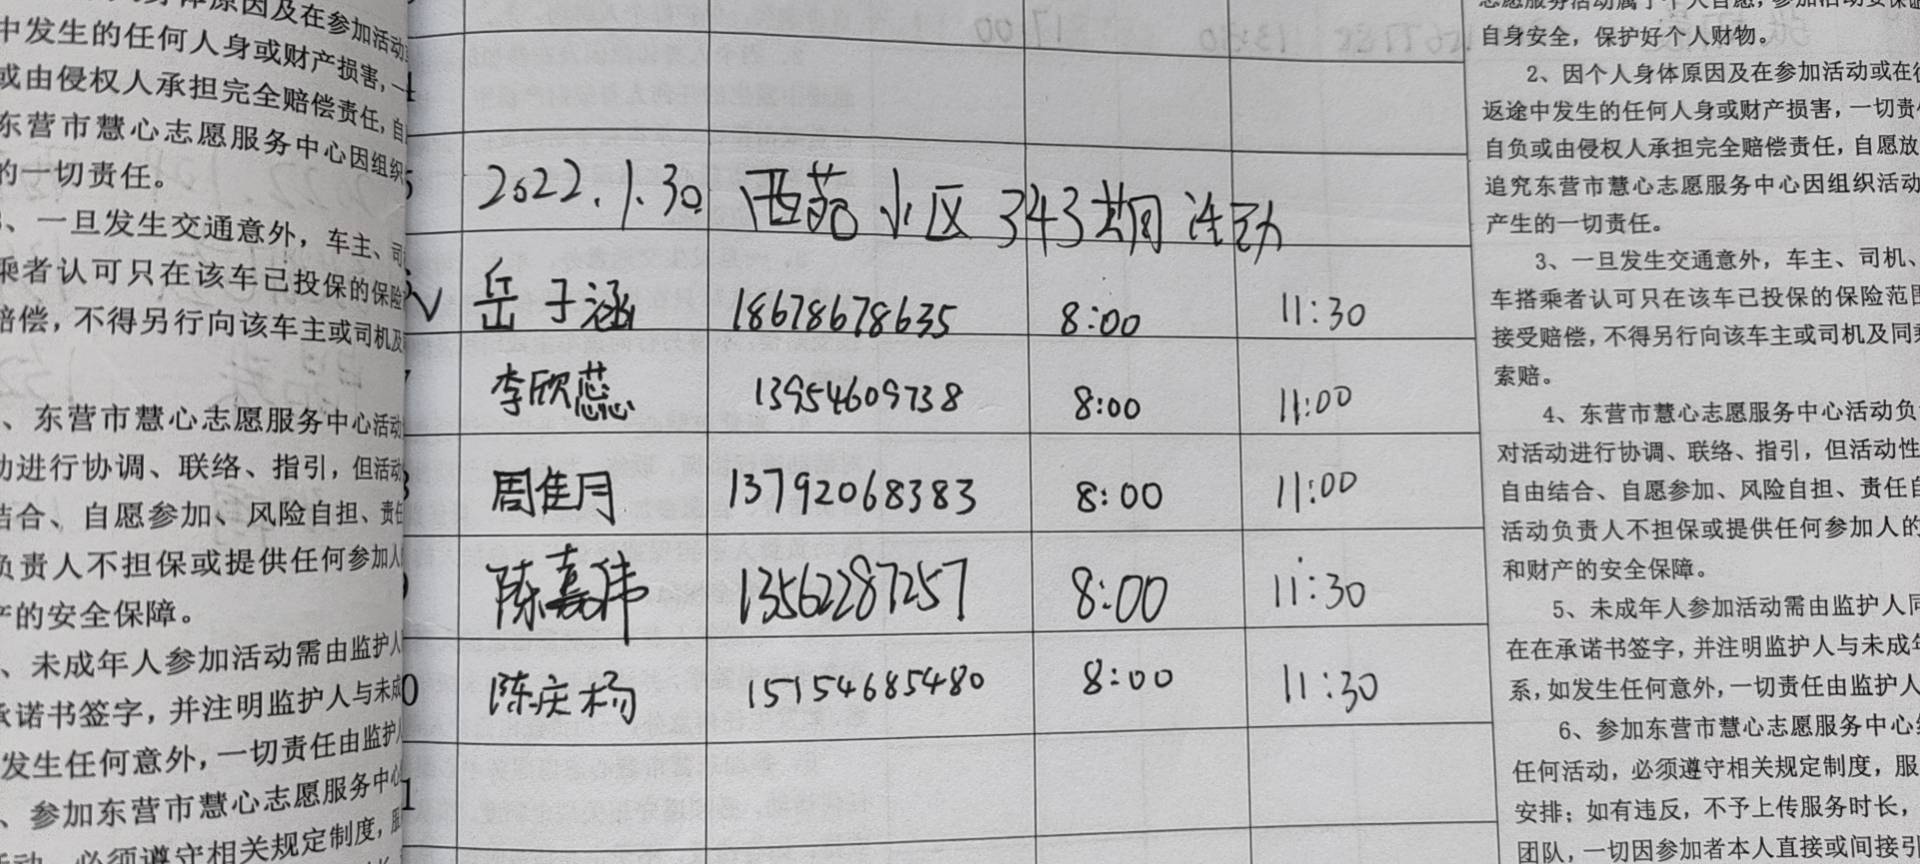 身体原因及在参加活动
中发生的任何人身或财产损害，一
或由侵权人承担完全赔偿责任，自
东营市慧心志愿服务中心因组织
的一切责任。
、一旦发生交通意外，车主、司
乘者认可只在该车已投保的保险
赔偿，不得另行向该车主或司机及
、东营市慧心志愿服务中心活动
动进行协调、联络、指引，但活动
结合、自愿参加、风险自担、责任
负责人不担保或提供任何参加人
产的安全保障。
、未成年人参加活动需由监护人
承诺书签字，并注明监护人与未成
发生任何意外，一切责任由监护人
、参加东营市慧心志愿服务中心
活动，必须遵守相关规定制度，服
2022.1.30 西苑小区343期活动
√ 岳于涵 18678678635 8:00 11:30
李欣蕊 13954609738 8:00 11:00
周佳月 13792068383 8:00 11:00
陈嘉伟 13562287257 8:00 11:30
0 陈庆杨 15154685480 8:00 11:30
1
志愿服务活动属于个人自愿，参加活动要保证
自身安全，保护好个人财物。
2、因个人身体原因及在参加活动或在往
返途中发生的任何人身或财产损害，一切责任
自负或由侵权人承担完全赔偿责任，自愿放
追究东营市慧心志愿服务中心因组织活动
产生的一切责任。
3、一旦发生交通意外，车主、司机、
车搭乘者认可只在该车已投保的保险范围
接受赔偿，不得另行向该车主或司机及同乘
索赔。
4、东营市慧心志愿服务中心活动负
对活动进行协调、联络、指引，但活动性
自由结合、自愿参加、风险自担、责任自
活动负责人不担保或提供任何参加人的
和财产的安全保障。
5、未成年人参加活动需由监护人同
在在承诺书签字，并注明监护人与未成年
系，如发生任何意外，一切责任由监护人
6、参加东营市慧心志愿服务中心组
任何活动，必须遵守相关规定制度，服
安排；如有违反，不予上传服务时长，
团队，一切因参加者本人直接或间接引